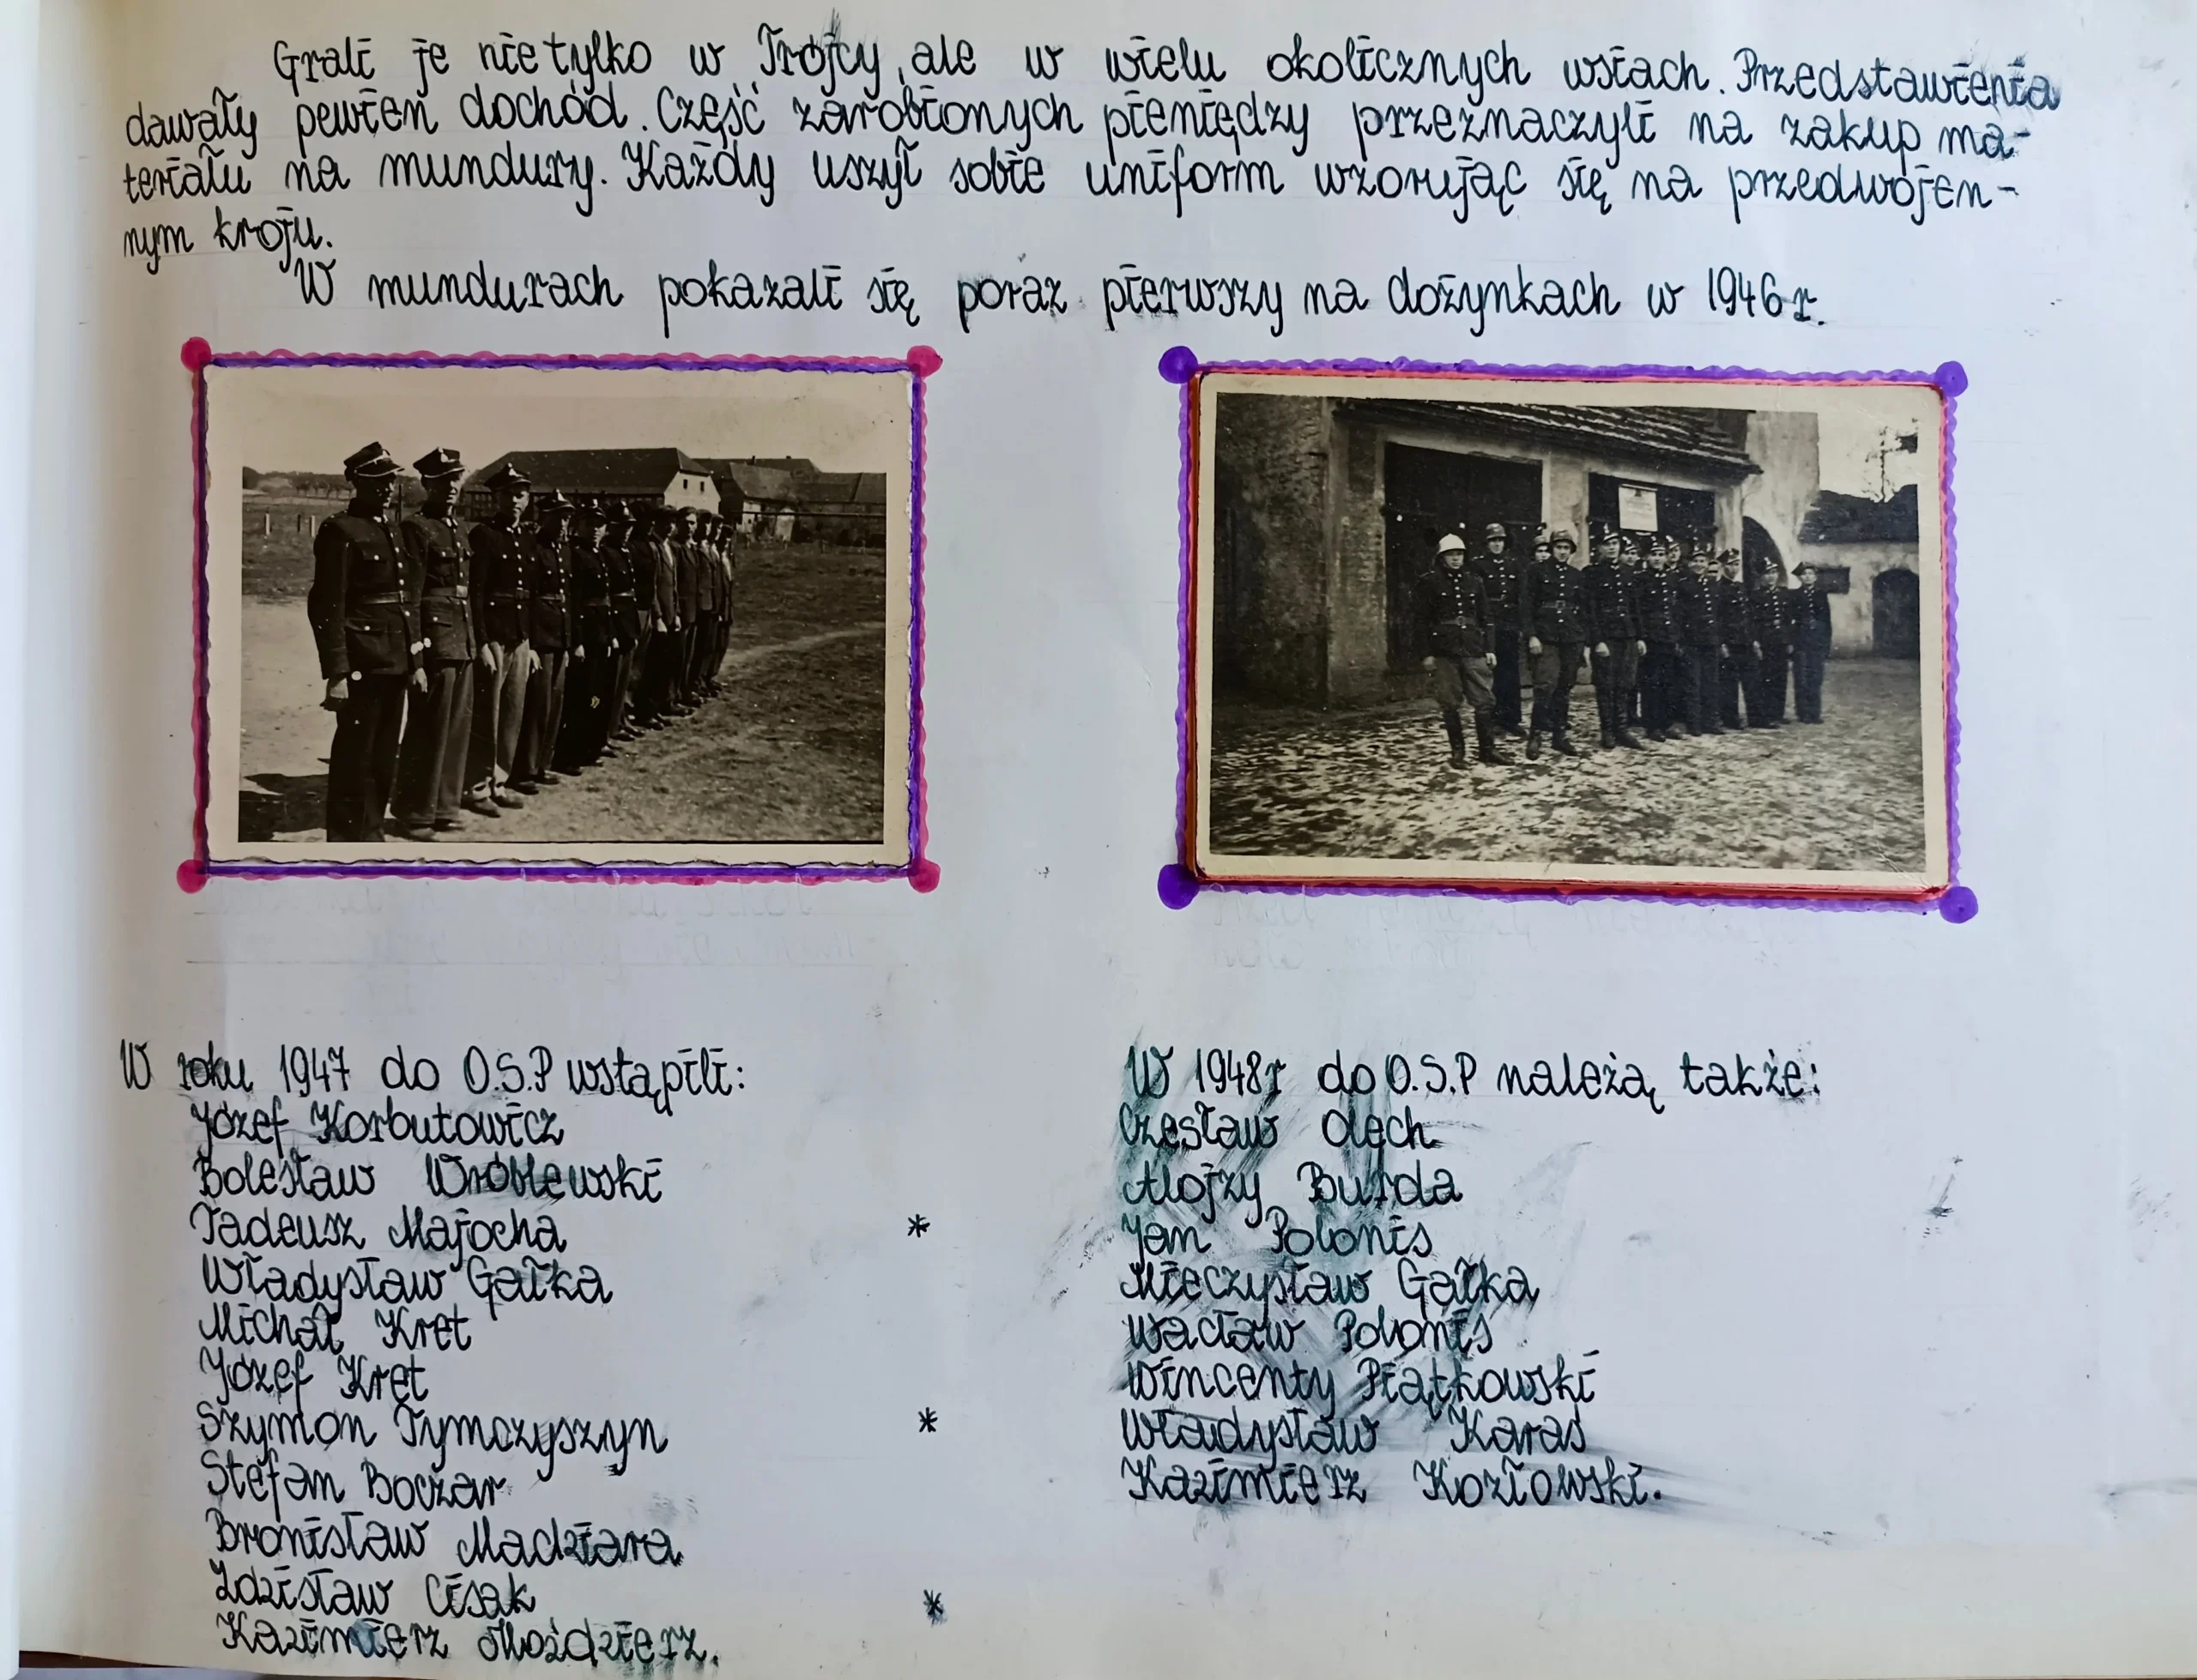 Grali je nie tylko w Trójcy, ale w wielu okolicznych wsiach. Przedstawienia
dawały pewien dochód. Część zarobionych pieniędzy przeznaczyli na zakup ma-
teriału na mundury. Każdy uszył sobie uniform wzorując się na przedwojen-
nym kroju.
W mundurach pokazali się poraz pierwszy na dożynkach w 1946 r.
W roku 1947 do O.S.P wstąpili:
Józef Korbutowicz
Bolesław Wróblewski
Tadeusz Majocha *
Władysław Gałka
Michał Kret
Józef Kret
Szymon Tymczyszyn *
Stefan Boczar
Bronisław Madziara
Zdzisław Cisak *
Kazimierz Moździerz.
W 1948r do O.S.P należą także:
Czesław Olech
Alojzy Burda
Jan Polonis
Mieczysław Gałka
Wacław Polonis
Wincenty Piątkowski
Władysław Karaś
Kazimierz Kozłowski.